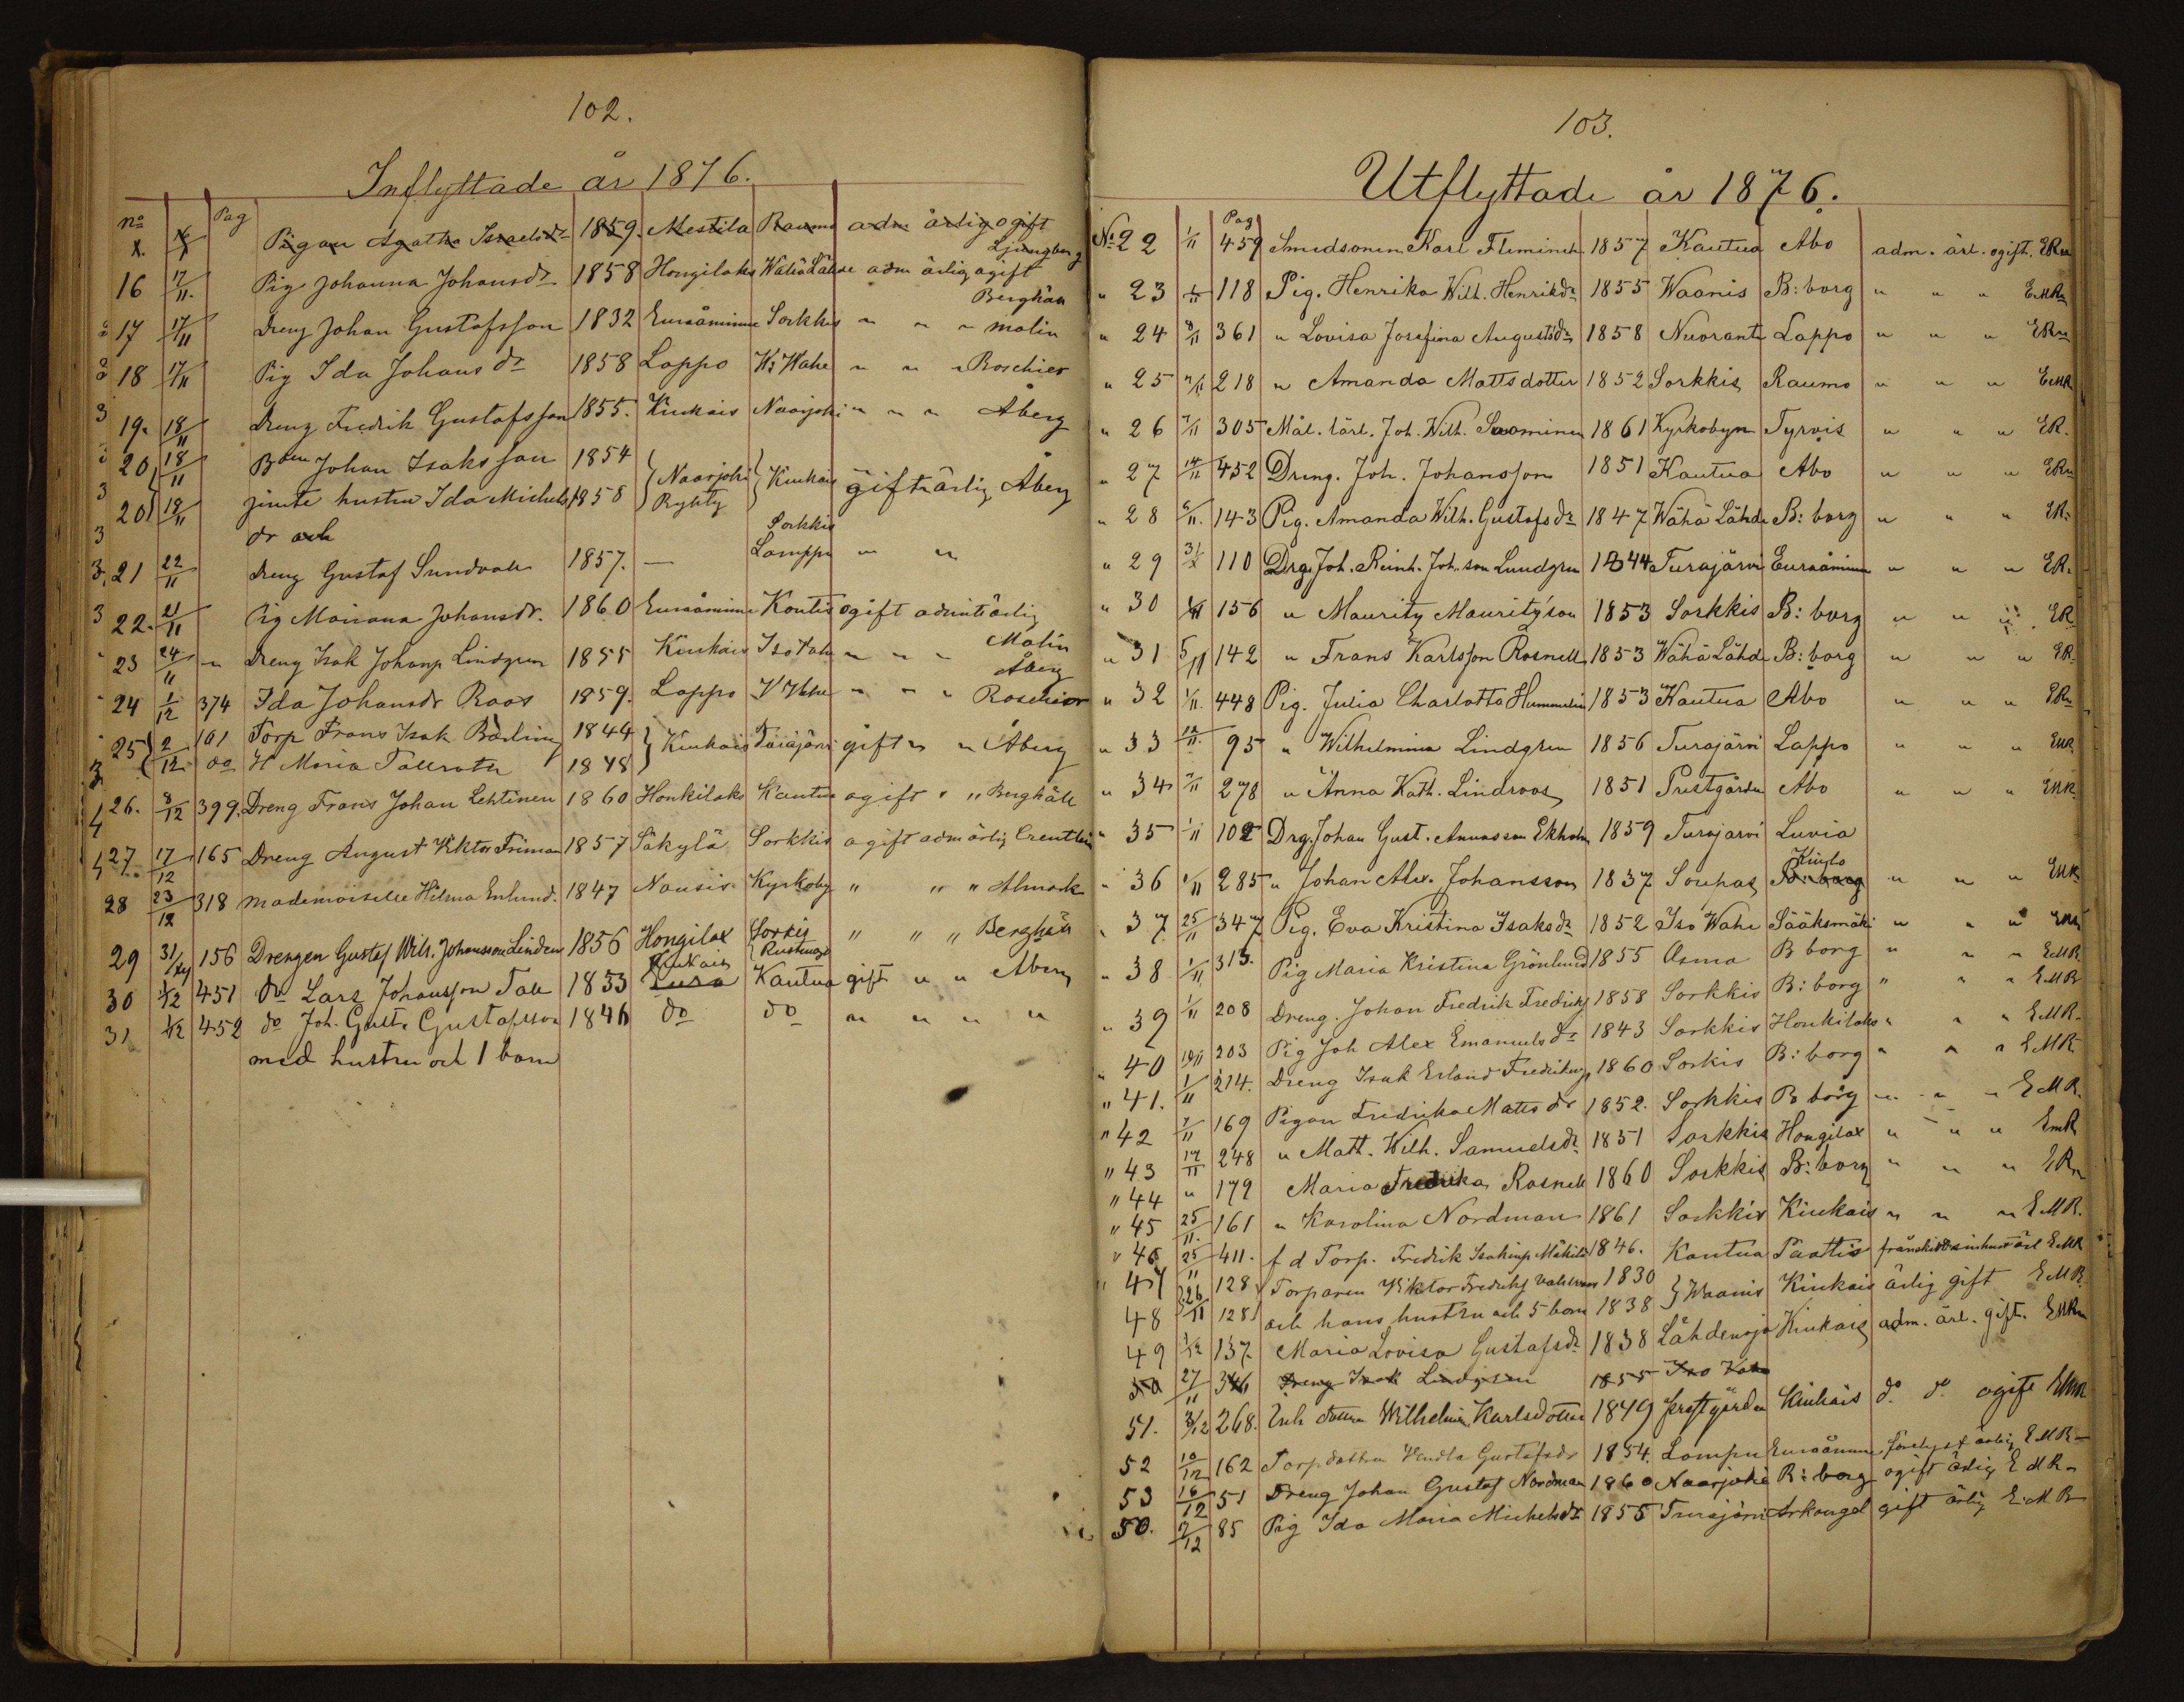 102.
Inflyttade år 1876.
No Pag
x. Pigan Agatha Israelsdr 1859. Mestila Raumo adm ärlig ogift Ljungberg
16 17/11. Pig Johanna Johansdr 1858 Hongilaks Wähä Lähde adm ärlig ogift Berghäll
17 17/11 Dreng Johan Gustafsson 1832 Euraåminne Sorkkis " " " Malin
18 17/11 Pig Ida Johansdr 1858 Lappo " " " Roschier
19. 18/11 Dreng Fredrik Gustafsson 1855. Kiukais Naarjoki " " " Åberg
20 18/11 Johan Isaksson 1854 Naarjoki Kiukais gift ärlig Åberg
20 18/11 jemte hustru Ida Michels 1858
dr och
3. 21 22/11 Dreng Gustaf Sundvall 1857. — Sorkkis Lamppu " "
22. 21/11 Pig Mariana Johansdr. 1860 Euraåminne Kontis ogift admitt ärlig Malin
23 24/11 " Dreng Isak Johansp Lindgren 1855 Kiukais Iso Vahe " " " Åberg
24 1/12 374 Ida Johansdr Roos 1859. Lappo " " " Roschier
25 2/12 161 Torp Frans Isak 1844 Kiukais Turajärvi gift " " Åberg
do H Maria Tallroth 1848
26. 8/12 399. Dreng Frans Johan Lehtinen 1860 Honkilaks Kautua ogift " " Berghäll
27. 17/12 165 Dreng August Viktor Friman 1857 Säkylä Sorkkis ogift adm ärlig
28 23/12 318 Mademoiselle Hilma Enlund. 1847 Nousis Kyrkoby " " " Almark
29 156 Drengen Gustaf Wilh. Johansson Linden 1856 Hongilax Sorkis " " " Berghäll
30 1/12 451 do Lars Johansson Tall 1853 Eura Kiukais Kautua gift " " Åberg
31 1/12 452 do Joh. Gust. Gustafsson 1846 do do " " " "
med hustru och 1 barn
103.
Utflyttade år 1876.
Pag
No 22 1/11 459 Smedsonen Karl Fleminch 1857 Kautua Åbo adm. ärl. ogift. EMR
" 23 118 Pig. Henrika Wilh. Henriksdr 1855 Waanis B:borg " " " EMR
" 24 8/11 361 " Lovisa Josefina Augustsdr 1858 Nuoranti Lappo " " " EMR
" 25 218 " Amanda Mattsdotter 1852 Sorkkis Raumo " " " EMR
" 26 7/11 305 Mål. lärl. Joh. Wilh. Suominen 1861 Kyrkobyn Tyrvis " " " ER.
" 27 14/11 452 Dreng. Joh. Johansson 1851 Kautua Åbo " " " ER
" 28 143 Pig. Amanda Wilh. Gustafsdr 1847 Wähä Lähde B:borg " " " ER.
" 29 110 Drg. Joh. Reinh. Joh.son Lundgren 1844 Turajärvi Euraåminne " " " ER.
" 30 156 " Mauritz Mauritz'son 1853 Sorkkis B:borg " " " ER
" 31 5/11 142 " Frans Karlsson Rosnell 1853 Wähä Lähde B:borg " " " ER.
" 32 1/11. 448 Pig. Julia Charlotta Hummelin 1853 Kautua Åbo " " " ER
" 33 95 " Wilhelmina Lindgren 1856 Turajärvi Lappo " " " EMR
" 34 278 " Anna Kath. Lindroos 1851 Prestgården Åbo " " " EMR
" 35 1/11 102 Drg. Johan Gust. Annasson Ekholm 1859 Turajärvi Luvia
" 36 285 " Johan Alex. Johansson 1837 Soupas B:borg Kiulo " " " EMR
" 37 25/11 347 Pig. Eva Kristina Isaksdr 1852 Iso Wahe Sääksmäki " " "
" 38 1/11 313. Pig Maria Kristina Grönlund 1855 Auma B borg " " " EMR
" 39 1/11 208 Dreng. Johan Fredrik Fredriks 1858 Sorkkis B:borg " " " EMR
" 40 203 Pig Joh Alex Emanuelsdr 1843 Sorkkis Honkilaks " " " EMR.
" 41. 1/11 214. Dreng Isak Erland Fredriksp 1860 Sorkis B:borg " " " EMR
" 42 7/11 169 Pigan Fredrika Matts dr 1852. Sorkkis B borg " " " EMR.
" 43 248 " Matt. Wilh. Samuelsdr 1851 Sorkkis Hongilax " " " EMR
" 44 " 179 Maria Fredrika Rosnell 1860 Sorkkis B:borg " " " ER
" 45 25/11. 161 " Karolina Nordman 1861 Sorkkis Kiukais " " " EMR.
" 46 25/11 411. f d Torp. Fredrik Isaksp Mäkilä 1846. Kautua Paattis EMR
" 47 26/11 128 Torparen Viktor Fredriks 1830 Waanis Kiukais ärlig gift EMR.
48 128 och hans hustru och 5 barn 1838
49 1/12 137. Maria Lovisa Gustafsdr 1838 Lähdenoja Kiukais adm. ärl. gift. EMR
50 27/11 346 Dreng Isak Lindgren 1855 Iso Vahe
51. 268. Enk dottern Wilhelmina Karlsdotter 1849 Prestgården Kiukais do do ogift EMR
52 10/12 162 Torpdottern Vendla Gustafsdr 1854. Lampu Euraåminne ärlig EMR
53 16/12 51 Dreng Johan Gustaf Nordman 1860 Naarjoki B:borg ogift ärlig EMR
50. 7/12 85 Pig Ida Maria Michelsdr 1855 Turajärvi Arkangel gift ärlig EMR